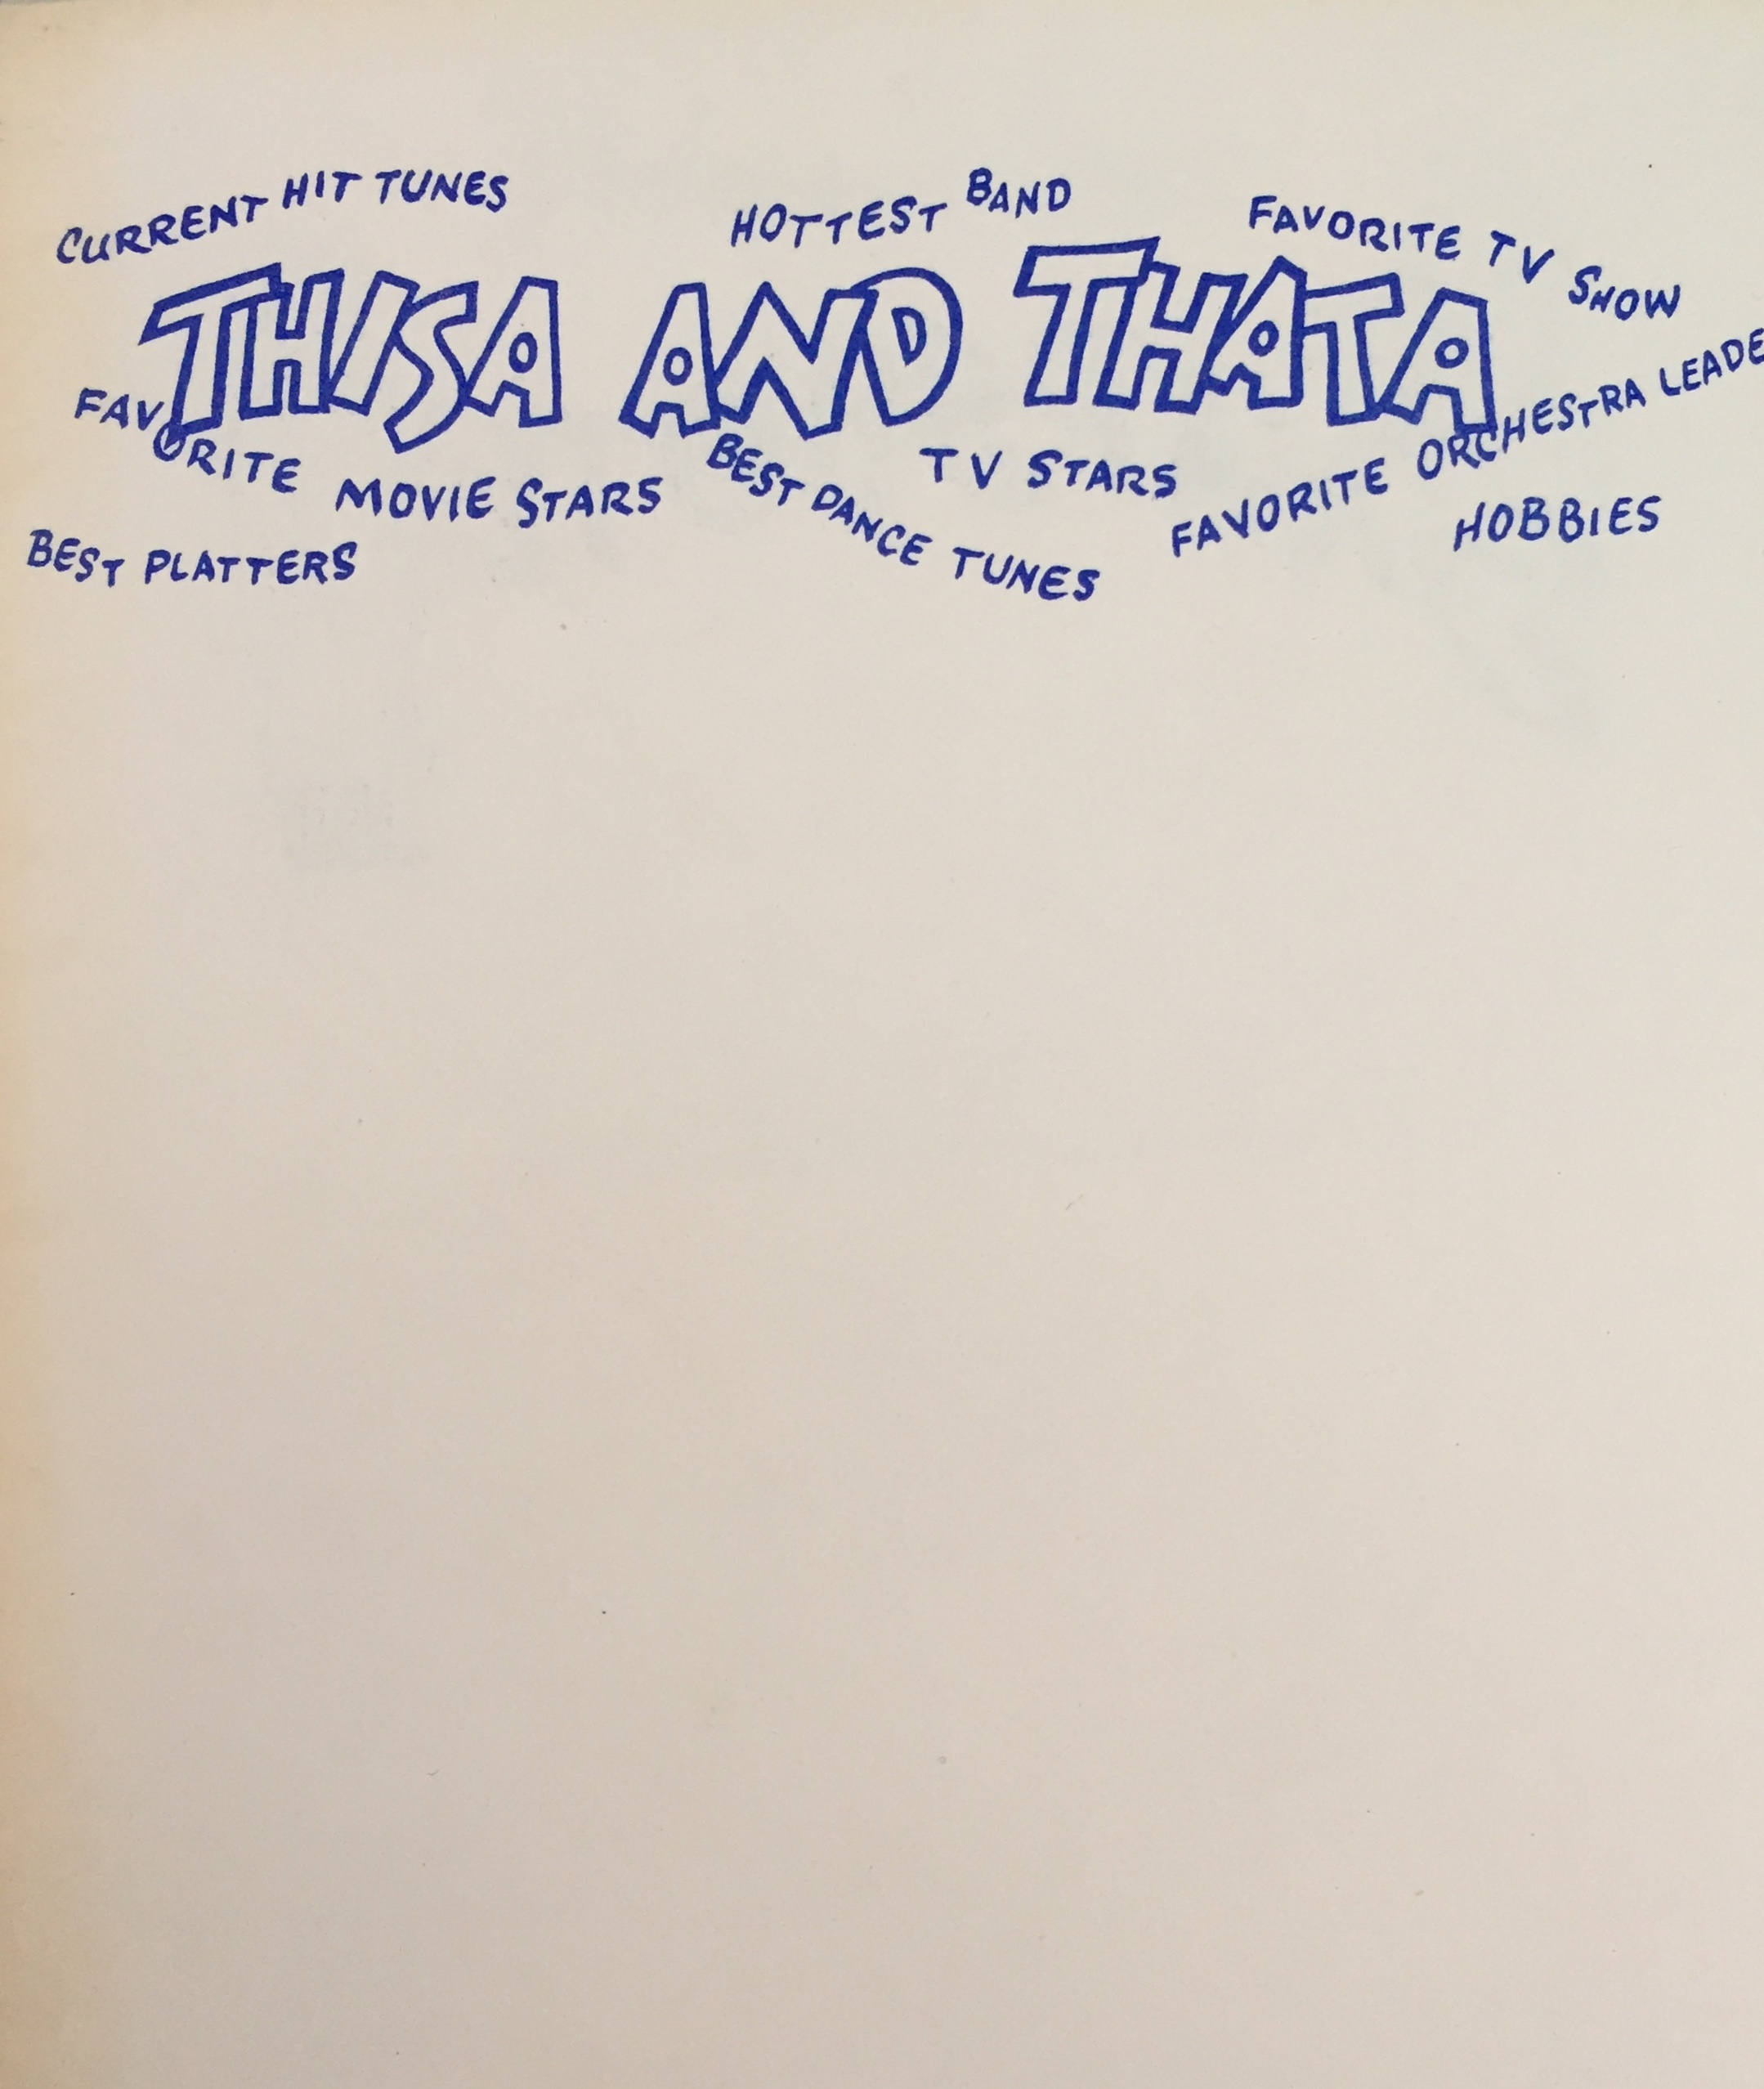 CURRENT HIT TUNES
HOTTEST BAND
FAVORITE TV SHOW
THISA AND THATA
FAVORITE MOVIE STARS
BEST DANCE TUNES
TV STARS
FAVORITE ORCHESTRA LEADE
HOBBIES
BEST PLATTERS